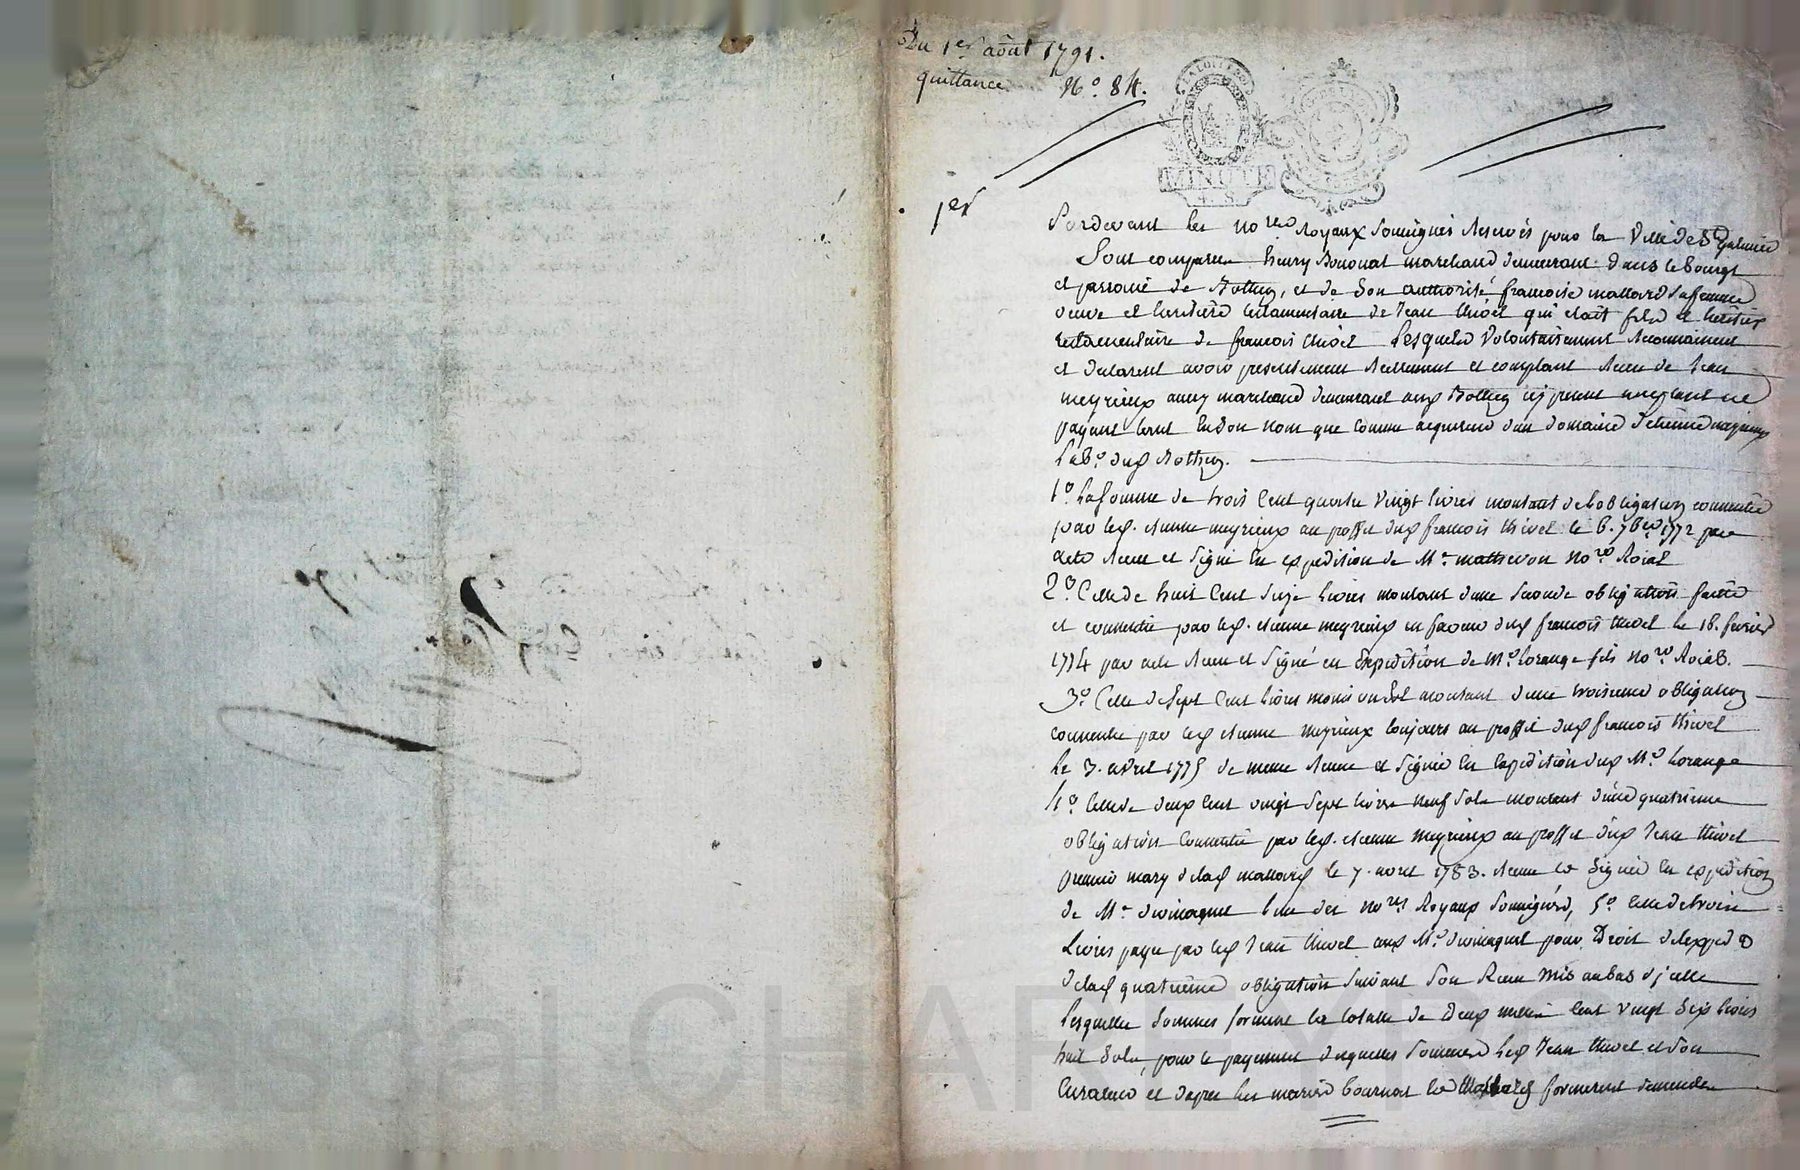 Du 1er août 1791.
quittance N° 84.
MINUTE
4. S.
1er
Pardevant les nores royaux soussignés réservés pour la ville de St galmier
Sont comparus henry marchand demeurant dans le bourg
et parroisse de, et de son authorité, francoise mallard sa femme
veuve et héritière testamentaire de Jean thivel qui etait fils et héritier
testamentaire de francois thivel Lesquels volontairement reconnaissent
et declarent avoir presentement réellement et comptant reçu de Jean
meyrieux aussy marchand demeurant aud cy present acceptant et
payant tant en son nom que comme acquereur d'un domaine d'etienne meyrieux
Lab. dud
1° La somme de trois cent quatre vingt livres montant de l'obligation consentie
par led. etienne meyrieux au proffit dud francois thivel le 6. 7bre 1772 par
acte reçu et signé en expedition de Me mathevon nore Roial
2° Celle de huit cent seize livres montant d'une seconde obligation faitte
et consentie par led. etienne meyrieux en faveur dud francois thivel le 18. fevrier
1774 par acte reçu et signé en Expedition de Me Lorange fils nore Roial.
3° Celle de sept cent livres moins un sol montant d'une troisieme obligation
consentie par led etienne meyrieux toujours au proffit dud francois thivel
le 3. avril 1775 de meme reçue et signée en Expedition dud Me Lorange
4° Celle de deux cent vingt sept livres neuf sols montant d'une quatrieme
obligation consentie par led. etienne meyrieux au proffit dud Jean thivel
premier mary de lad mallard le 7. avril 1783. reçue et signée en expedition
de Me l'un des nores Royaux soussignés, 5° celle de trois
Livres payée par led Jean thivel aud Me pour Droit d'exped
de lad quatrieme obligation suivant son Reçu mis au bas d'jcelle
lesquelles sommes forment la totalle de Deux mille cent vingt six livres
huit sols, pour le payement desquelles sommes led Jean thivel et son
curateur et depuis les mariés et mallard formerent demande
CHAPEY